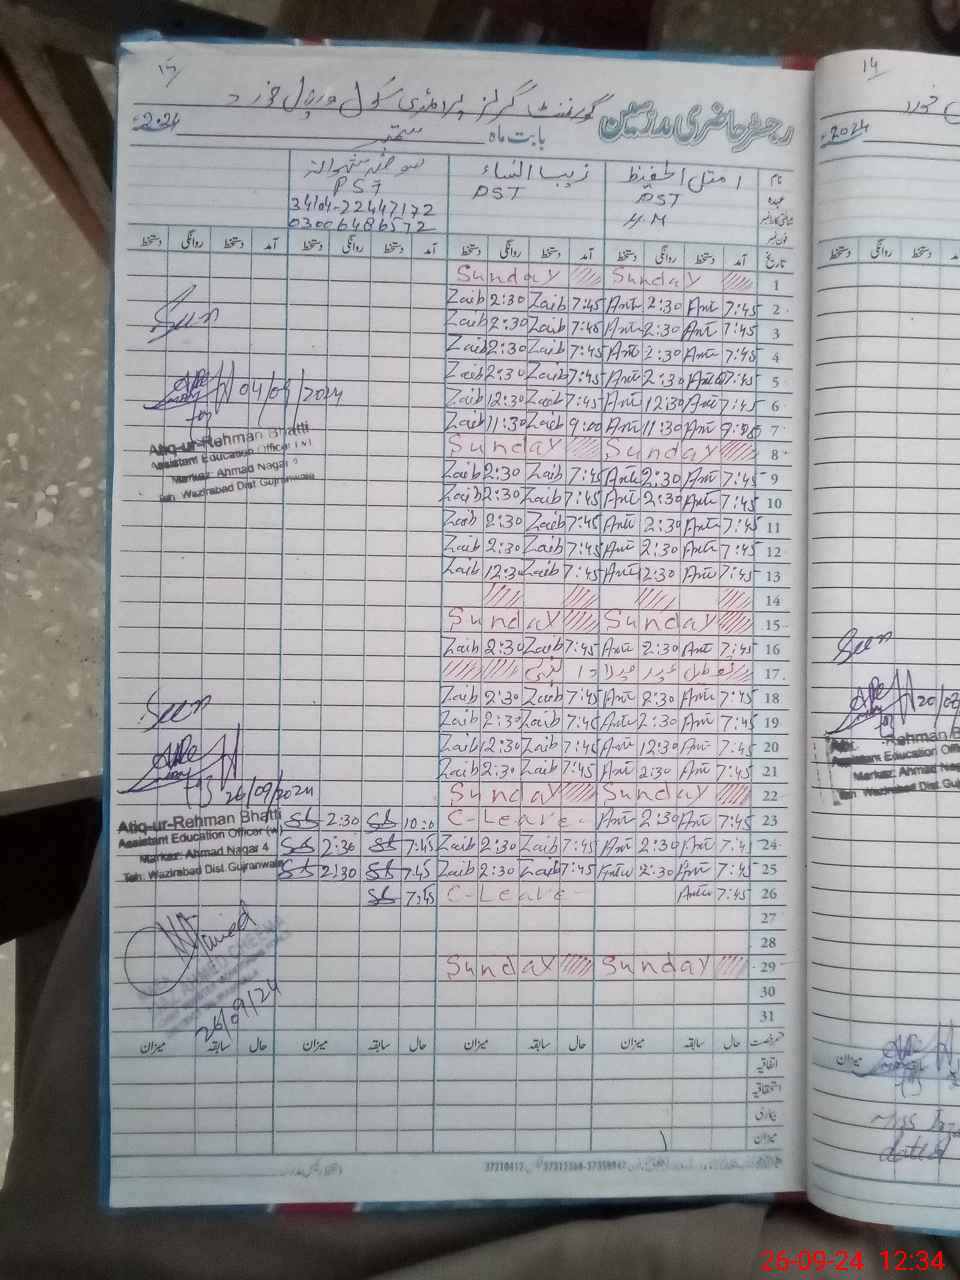 15
گورنمنٹ گرلز پرائمری سکول
رجسٹر حاضری مدرسین
بابت ماہ ستمبر 2024
نام امتل الحفیظ زیب النساء
عہدہ PST PST PST
H.M
34104-22447172
03006486572
تاریخ آمد دستخط روانگی دستخط آمد دستخط روانگی دستخط آمد دستخط روانگی دستخط آمد دستخط روانگی دستخط
1 Sunday Sunday
2 7:45 Ami 2:30 Ami 7:45 Zaib 2:30 Zaib
3 7:45 Ami 2:30 Ami 7:45 Zaib 2:30 Zaib
4 7:45 Ami 2:30 Ami 7:45 Zaib 2:30 Zaib
5 7:45 Ami 2:30 Ami 7:45 Zaib 2:30 Zaib
6 7:45 Ami 12:30 Ami 7:45 Zaib 12:30 Zaib
7 9:00 Ami 11:30 Ami 9:00 Zaib 11:30 Zaib
8 Sunday Sunday
9 7:45 Ami 2:30 Ami 7:45 Zaib 2:30 Zaib
10 7:45 Ami 2:30 Ami 7:45 Zaib 2:30 Zaib
11 7:45 Ami 2:30 Ami 7:45 Zaib 2:30 Zaib
12 7:45 Ami 2:30 Ami 7:45 Zaib 2:30 Zaib
13 7:45 Ami 12:30 Ami 7:45 Zaib 12:30 Zaib
14
15 Sunday Sunday
16 7:45 Ami 2:30 Ami 7:45 Zaib 2:30 Zaib
17 تعطیل عید میلاد النبی
18 7:45 Ami 2:30 Ami 7:45 Zaib 2:30 Zaib
19 7:45 Ami 2:30 Ami 7:45 Zaib 2:30 Zaib
20 7:45 Ami 12:30 Ami 7:45 Zaib 12:30 Zaib
21 7:45 Ami 2:30 Ami 7:45 Zaib 2:30 Zaib
22 Sunday Sunday
23 7:45 Ami 2:30 Ami C-Leave 10:0 2:30
24 7:45 Ami 2:30 Ami 7:45 Zaib 2:30 Zaib 7:45 2:30
25 7:45 Ami 2:30 Ami 7:45 Zaib 2:30 Zaib 7:45 2:30
26 7:45 Ami C-Leave 7:45
27
28
29 Sunday Sunday
30
31
حال سابقہ میزان حال سابقہ میزان حال سابقہ میزان حال سابقہ میزان
اتفاقیہ
استحقاقیہ
بیماری
میزان
Seen
04/09/2024
Atiq-ur-Rehman Bhatti
Assistant Education Officer
Markaz: Ahmad Nagar
Teh: Wazirabad Dist. Gujranwala
Seen
26/09/2024
Atiq-ur-Rehman Bhatti
Assistant Education Officer
Markaz: Ahmad Nagar 4
Teh: Wazirabad Dist. Gujranwala
26/09/24
14
2024
Seen
Rehman
Assistant Education
Markaz: Ahmad
Teh: Wazirabad Dist.
dated
26-09-24 12:34